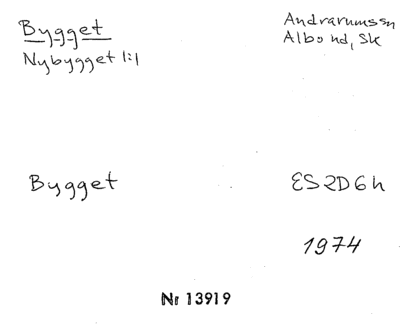 Bygget
Nybygget 1:1
Andrarumssn
Albo hd, Sk
Bygget
ES2D6h
1974
Nr 13919